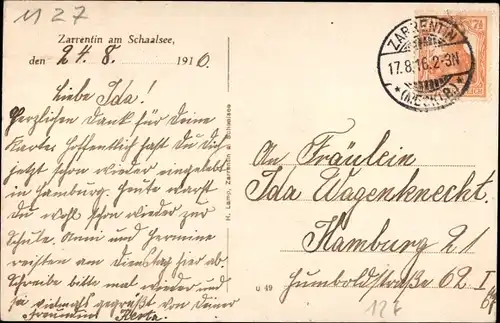 M 27
Zarrentin am Schaalsee,
den 24. 8. 1916.
Liebe Ida!
Herzlichen Dank für Deine
Karte. Hoffentlich hast Du Dich
jetzt schon wieder eingelebt
in Hamburg. Heute warst
Du wohl schon wieder zur
Schule. Anni und Hermine
reisten am Dienstag hier ab
Schreibe bitte mal wieder und
sei vielmals gegrüßt von Deiner
Freundin Herta.
H. Lamp, Zarrentin a. Schaalsee
U 49
ZARRENTIN
17.8.16.2-3N
* (MECKLB.) *
7½
An Fräulein
Ida Wagenknecht.
Hamburg 21
Humboldstraße 62 I